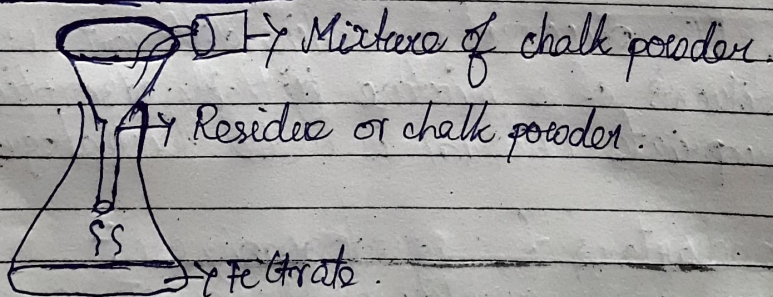 Mixture of chalk powder.
Residue or chalk powder.
Feltrate.